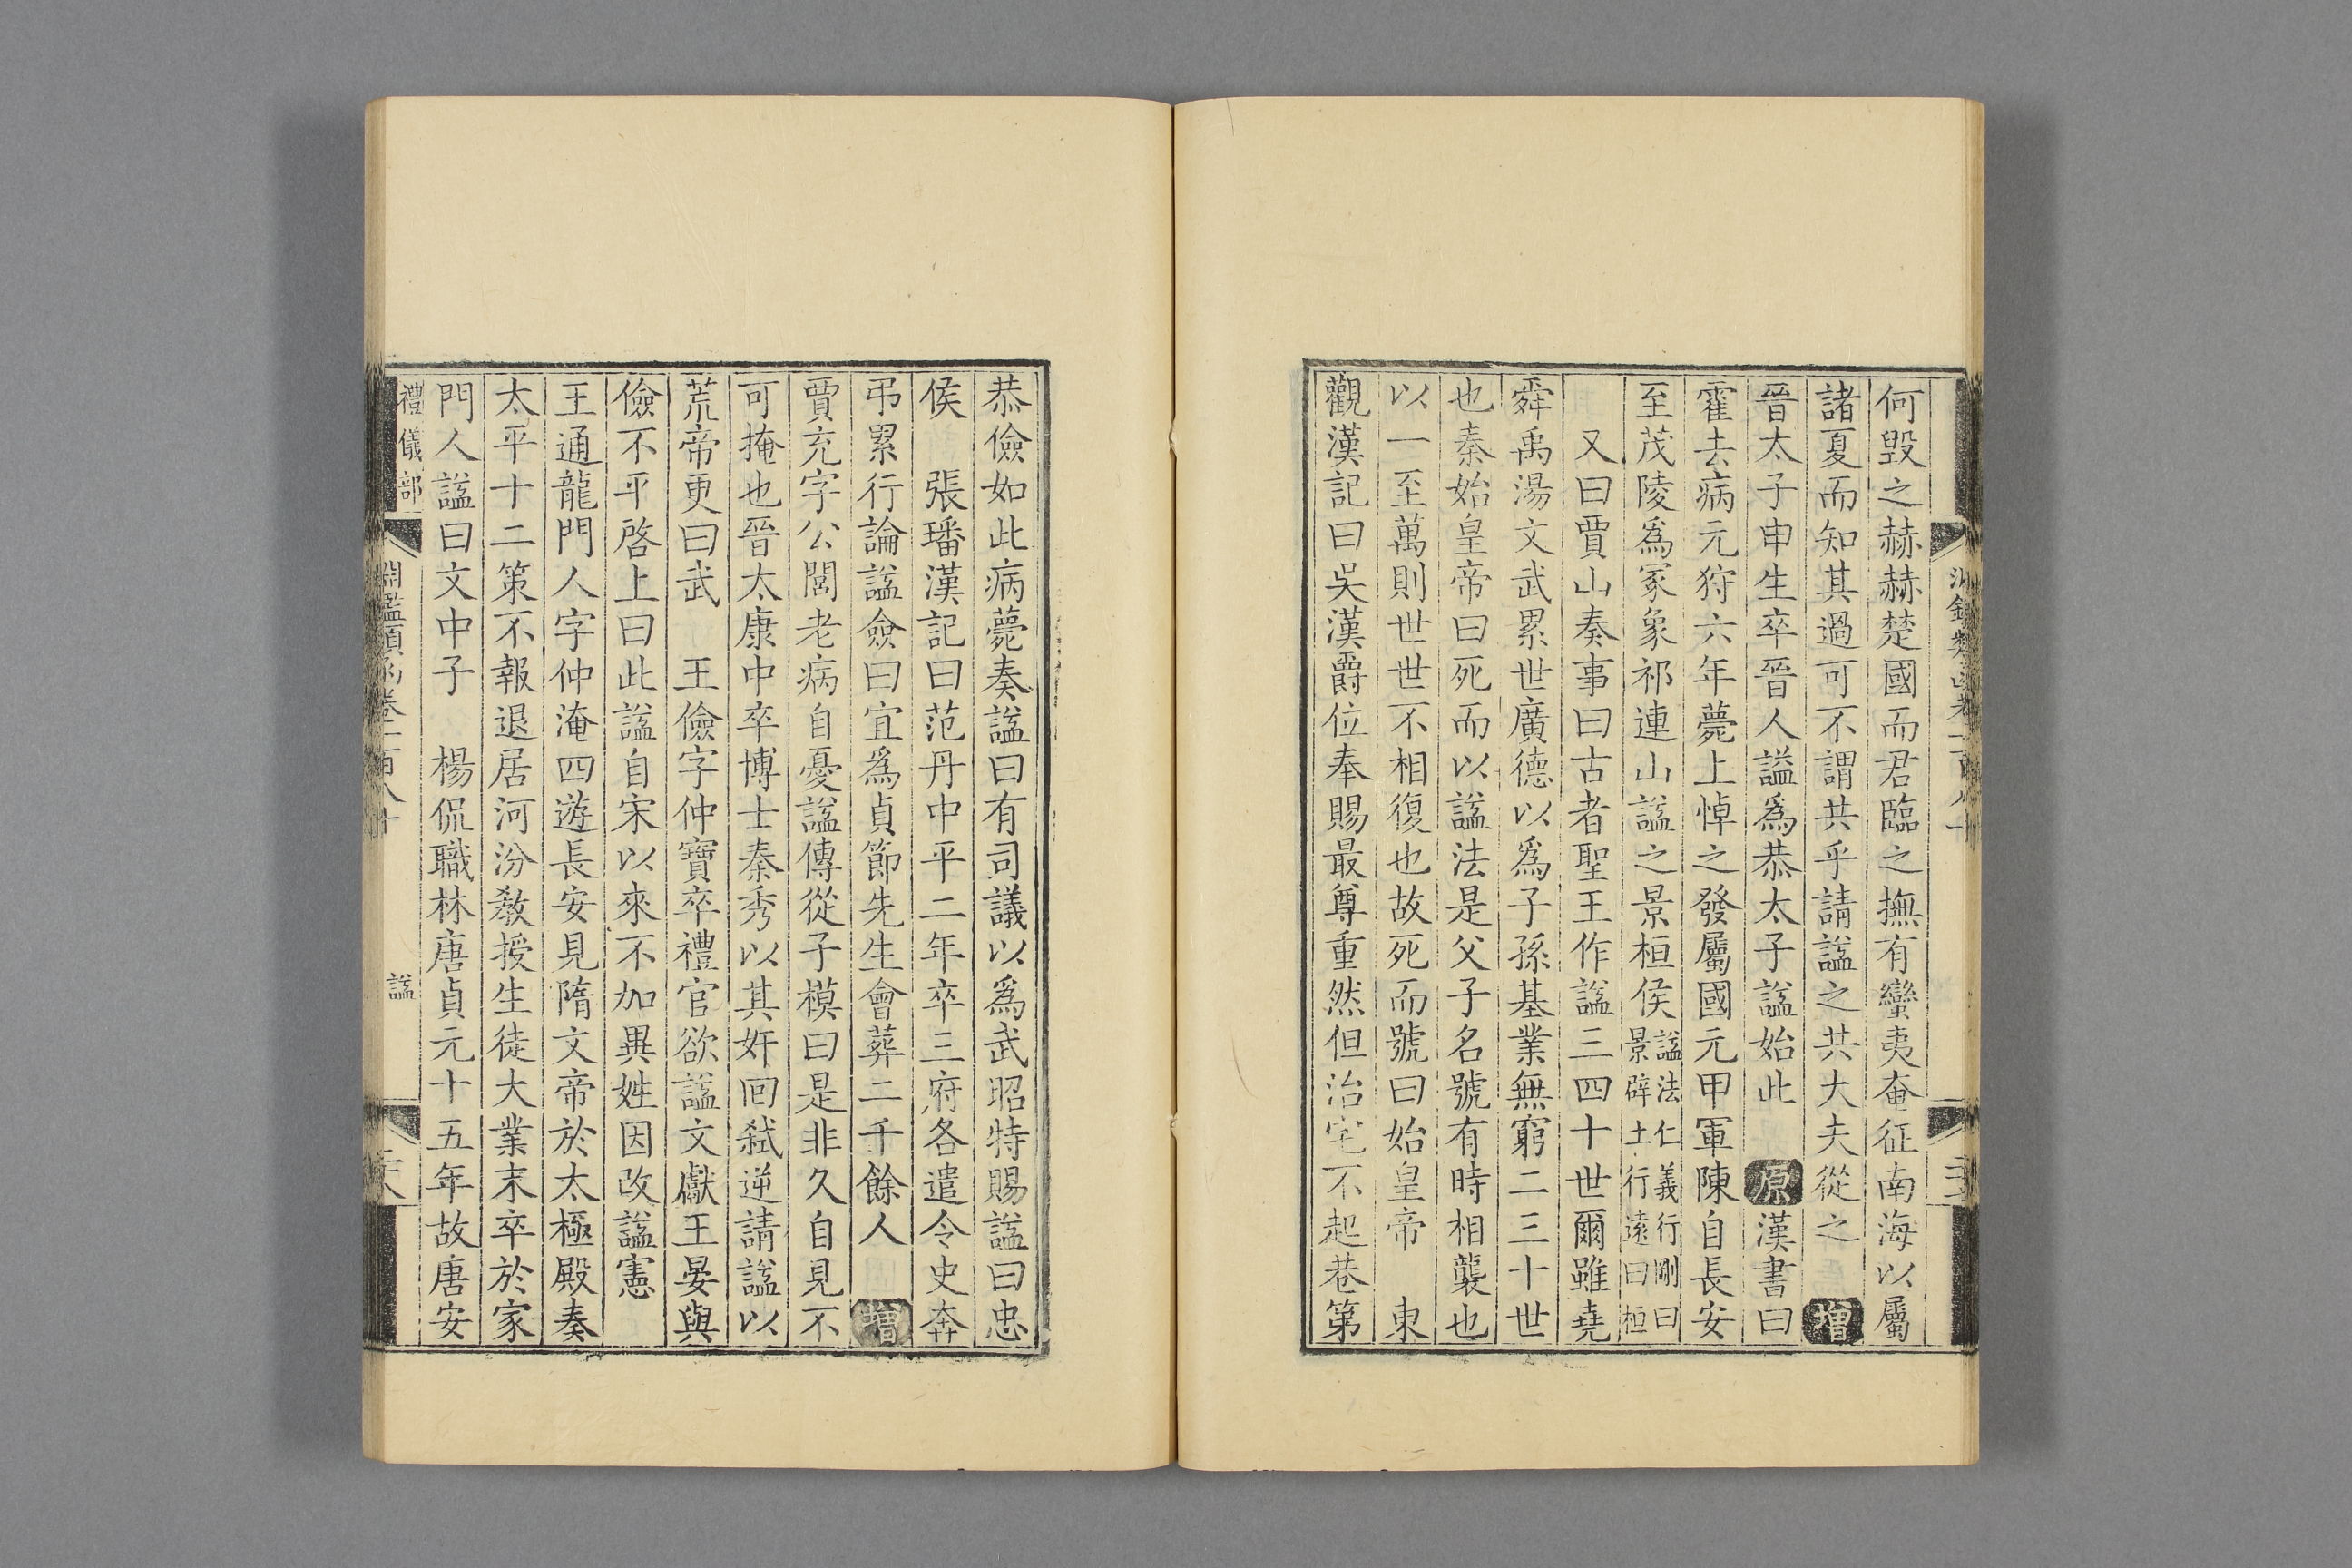 何毀之赫赫楚國而君臨之撫有蠻夷奄征南海以屬
諸夏而知其過可不謂共乎請諡之共大夫從之　增
晉太子申生卒晉人謚爲恭太子諡始此　原漢書曰
霍去病元狩六年薨上悼之發屬國元甲軍陳自長安
至茂陵爲冢象祁連山諡之景桓侯諡法仁義行剛曰景辟土行遠曰桓
又曰賈山奏事曰古者聖王作諡三四十世爾雖堯
舜禹湯文武累世廣德以爲子孫基業無窮二三十世
也秦始皇帝曰死而以諡法是父子名號有時相襲也
以一至萬則世世不相復也故死而號曰始皇帝　東
觀漢記曰吳漢爵位奉賜最尊重然但治宅不起巷第
恭儉如此病薨奏諡曰有司議以爲武昭特賜諡曰忠
侯　張璠漢記曰范丹中平二年卒三府各遣令史奔
弔累行論諡僉曰宜爲貞節先生會葬二千餘人　增
賈充字公閭老病自憂諡傳從子模曰是非久自見不
可掩也晉太康中卒博士秦秀以其奸回弒逆請諡以
荒帝更曰武　王儉字仲寶卒禮官欲諡文獻王晏與
儉不平啓上曰此諡自宋以來不加異姓因改諡憲
王通龍門人字仲淹四遊長安見隋文帝於太極殿奏
太平十二策不報退居河汾敎授生徒大業末卒於家
門人諡曰文中子　楊侃職林唐貞元十五年故唐安
禮儀部　淵鑑類函卷一百八十　諡　二十八